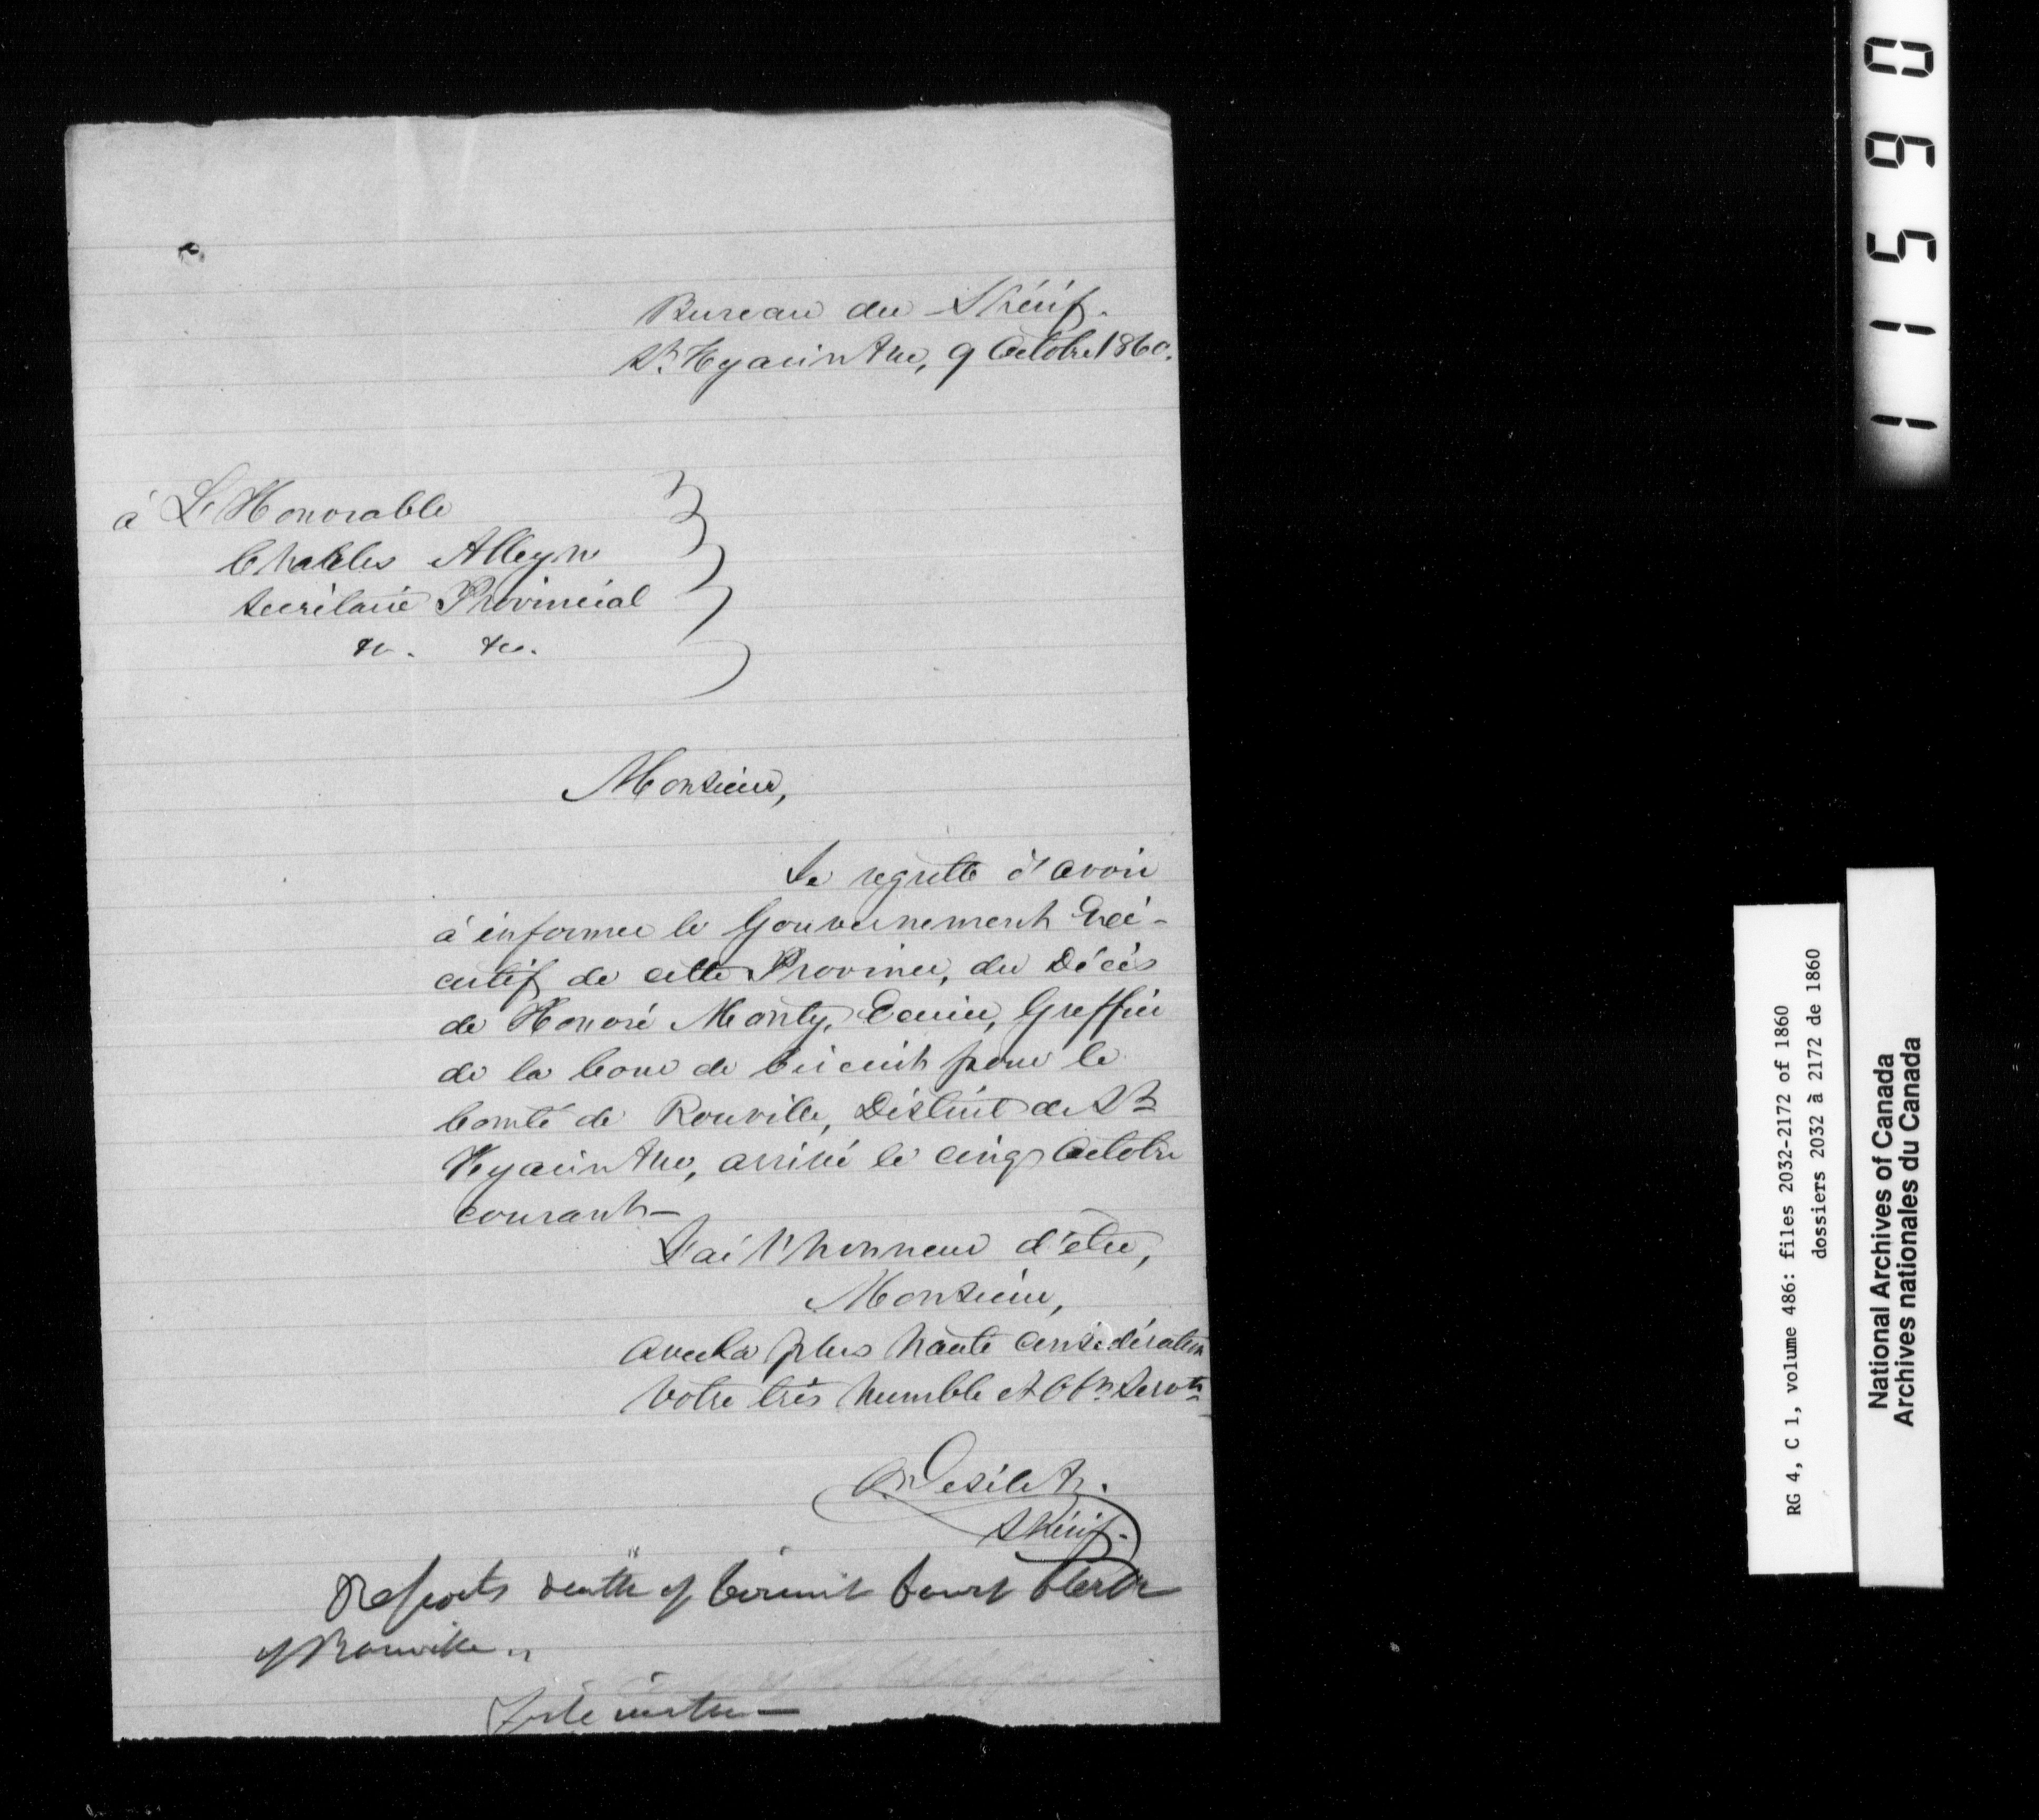 Bureau du Shérif.
St. Hyacinthe, 9 Octobre 1860.
à L'Honorable
Charles Alleyn
Secrétaire Provincial
&c. &c.
Monsieur,
Je regrette d'avoir
à informer le Gouvernement Exé-
cutif de cette Province, du Décès
de Honoré Monty, Ecuier, Greffier
de la Cour de Circuit pour le
Comté de Rouville, District de St
Hyacinthe, arrivé le cinq Octobre
courant—
J'ai l'honneur d'être,
Monsieur,
avec la plus haute considération
Votre très humble et Obt. Servt
Desilets.
Shérif.
Reports death of Circuit Court Clerk
of Rouville
11590
RG 4, C 1, volume 486: files 2032-2172 of 1860
dossiers 2032 à 2172 de 1860
National Archives of Canada
Archives nationales du Canada